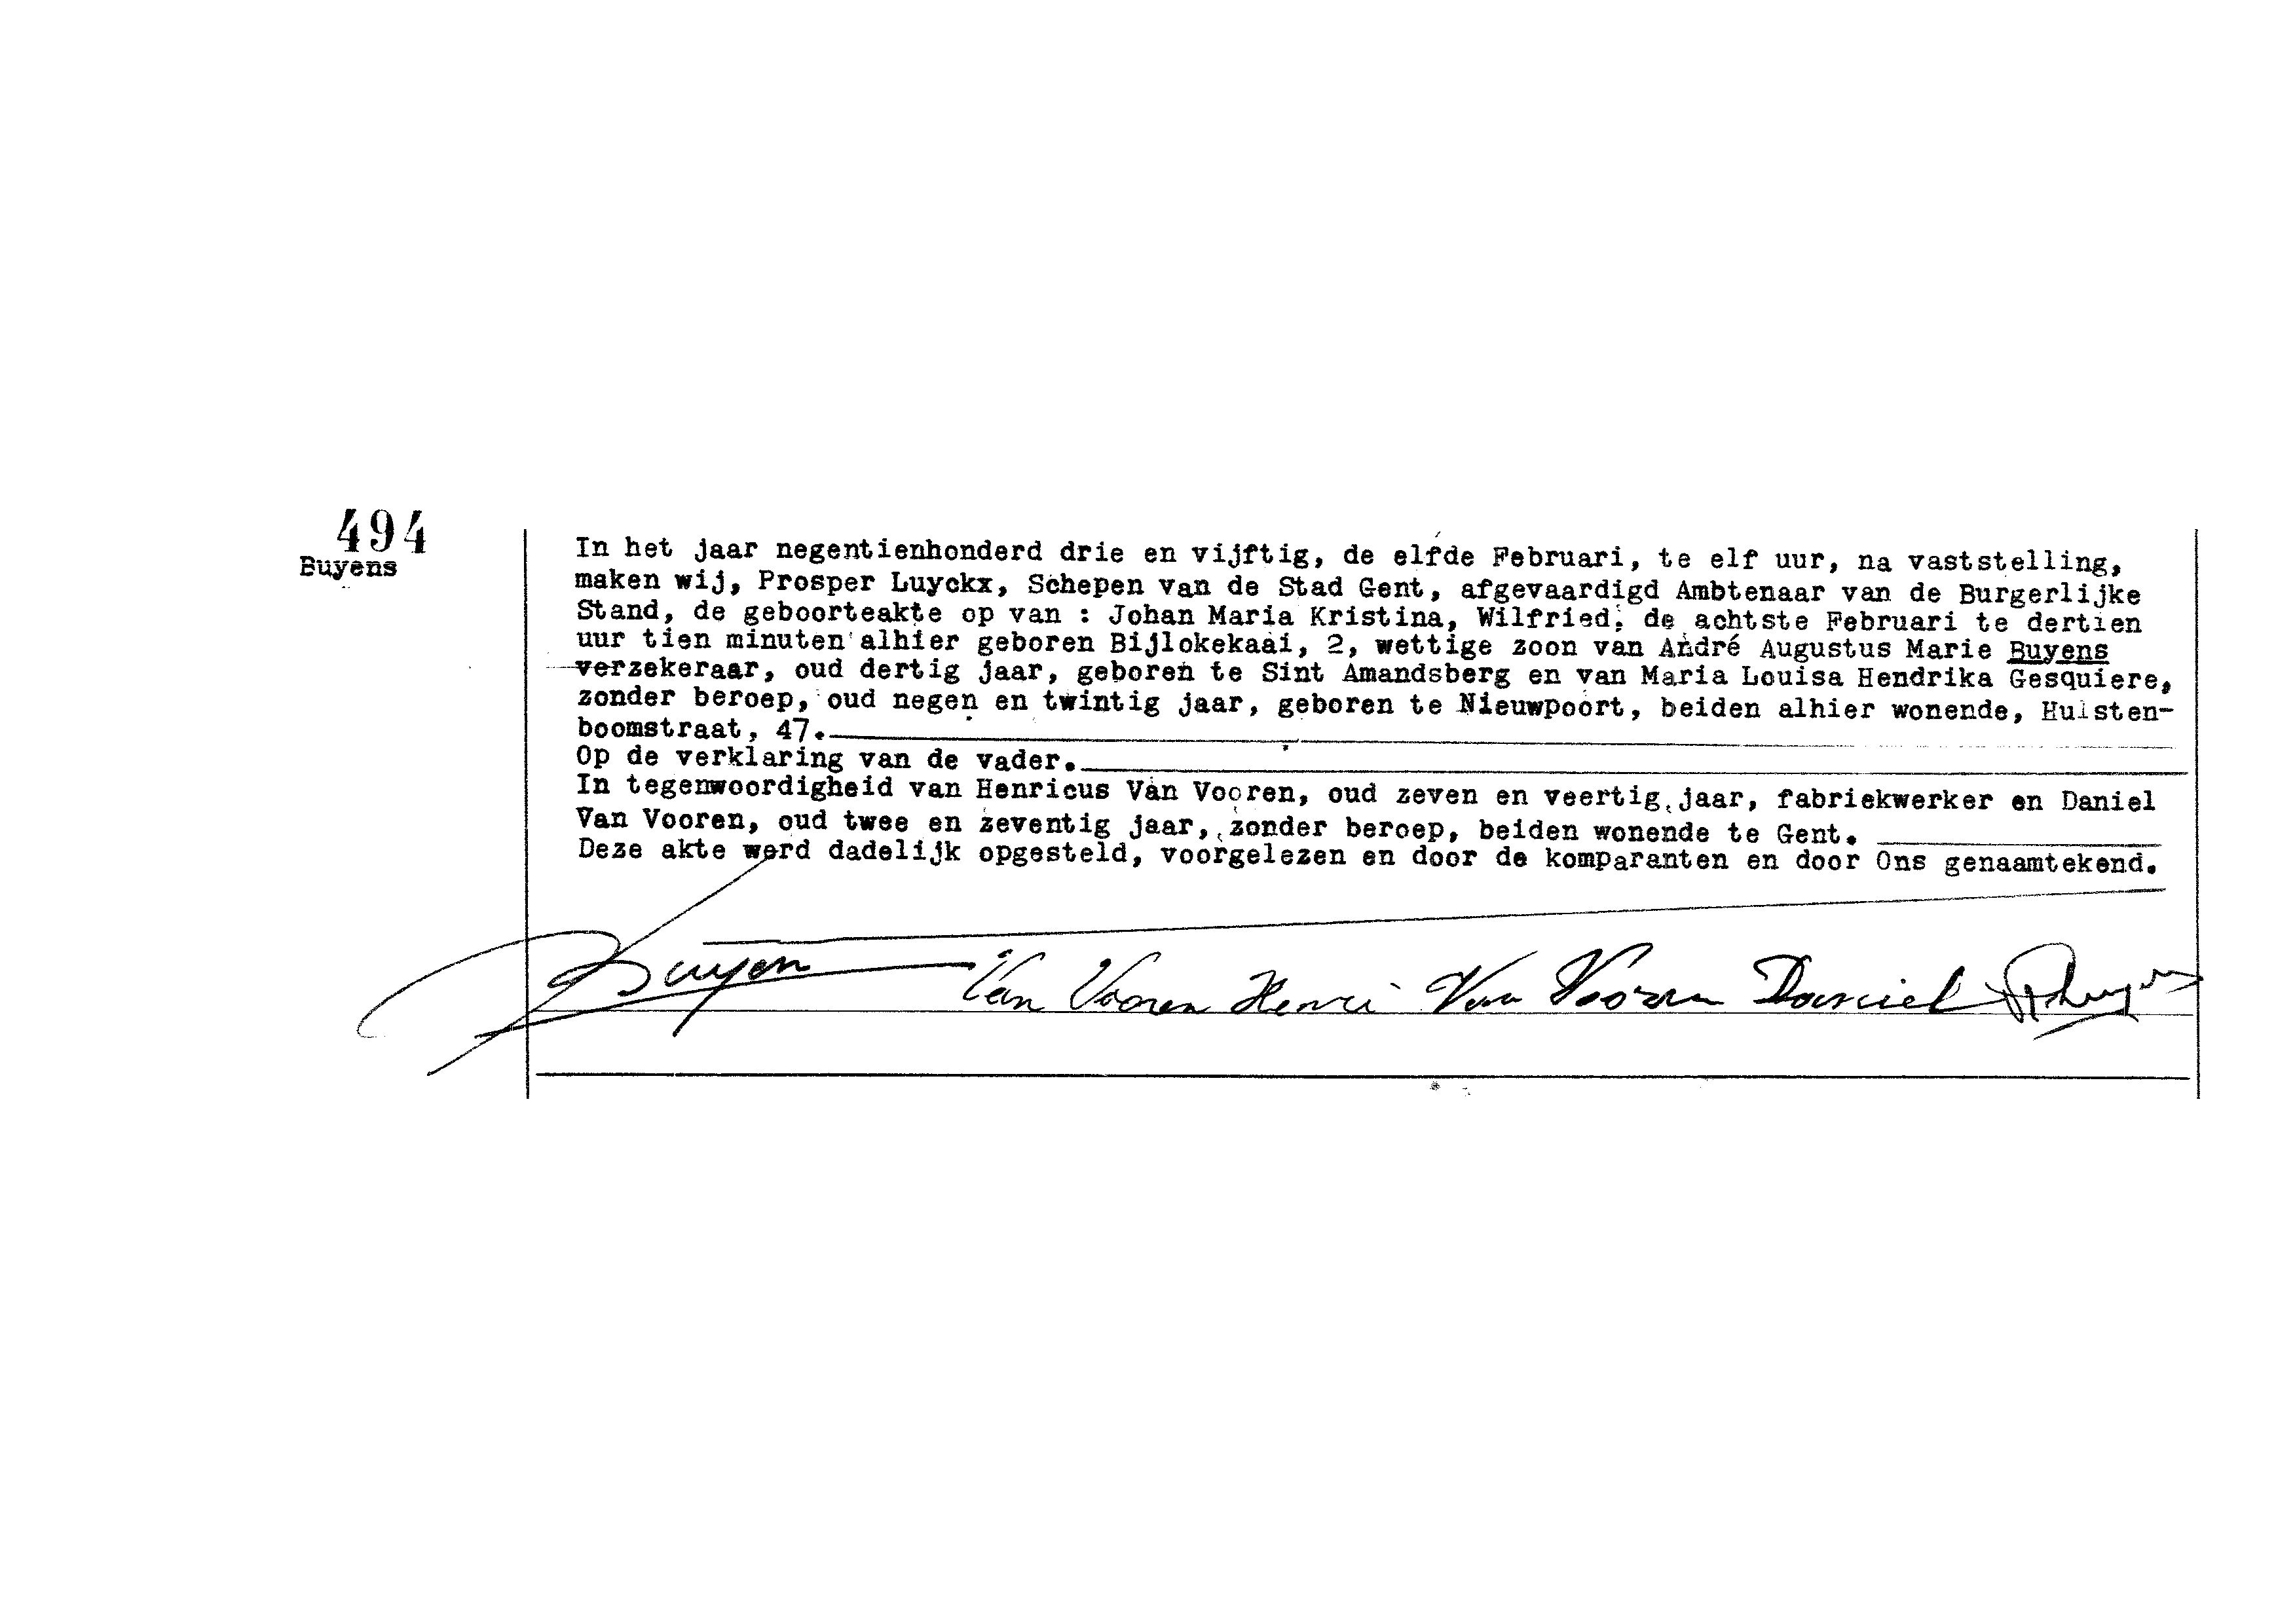 494
Buyens
In het jaar negentienhonderd drie en vijftig, de elfde Februari, te elf uur, na vaststelling,
maken wij, Prosper Luyckx, Schepen van de Stad Gent, afgevaardigd Ambtenaar van de Burgerlijke
Stand, de geboorteakte op van : Johan Maria Kristina, Wilfried, de achtste Februari te dertien
uur tien minuten alhier geboren Bijlokekaai, 2, wettige zoon van André Augustus Marie Buyens
verzekeraar, oud dertig jaar, geboren te Sint Amandsberg en van Maria Louisa Hendrika Gesquiere,
zonder beroep, oud negen en twintig jaar, geboren te Nieuwpoort, beiden alhier wonende, Hulsten-
boomstraat, 47.
Op de verklaring van de vader.
In tegenwoordigheid van Henricus Van Vooren, oud zeven en veertig jaar, fabriekwerker en Daniel
Van Vooren, oud twee en zeventig jaar, zonder beroep, beiden wonende te Gent.
Deze akte werd dadelijk opgesteld, voorgelezen en door de komparanten en door Ons genaamtekend.
Buyen Van Vooren Henri Van Vooren Daniel